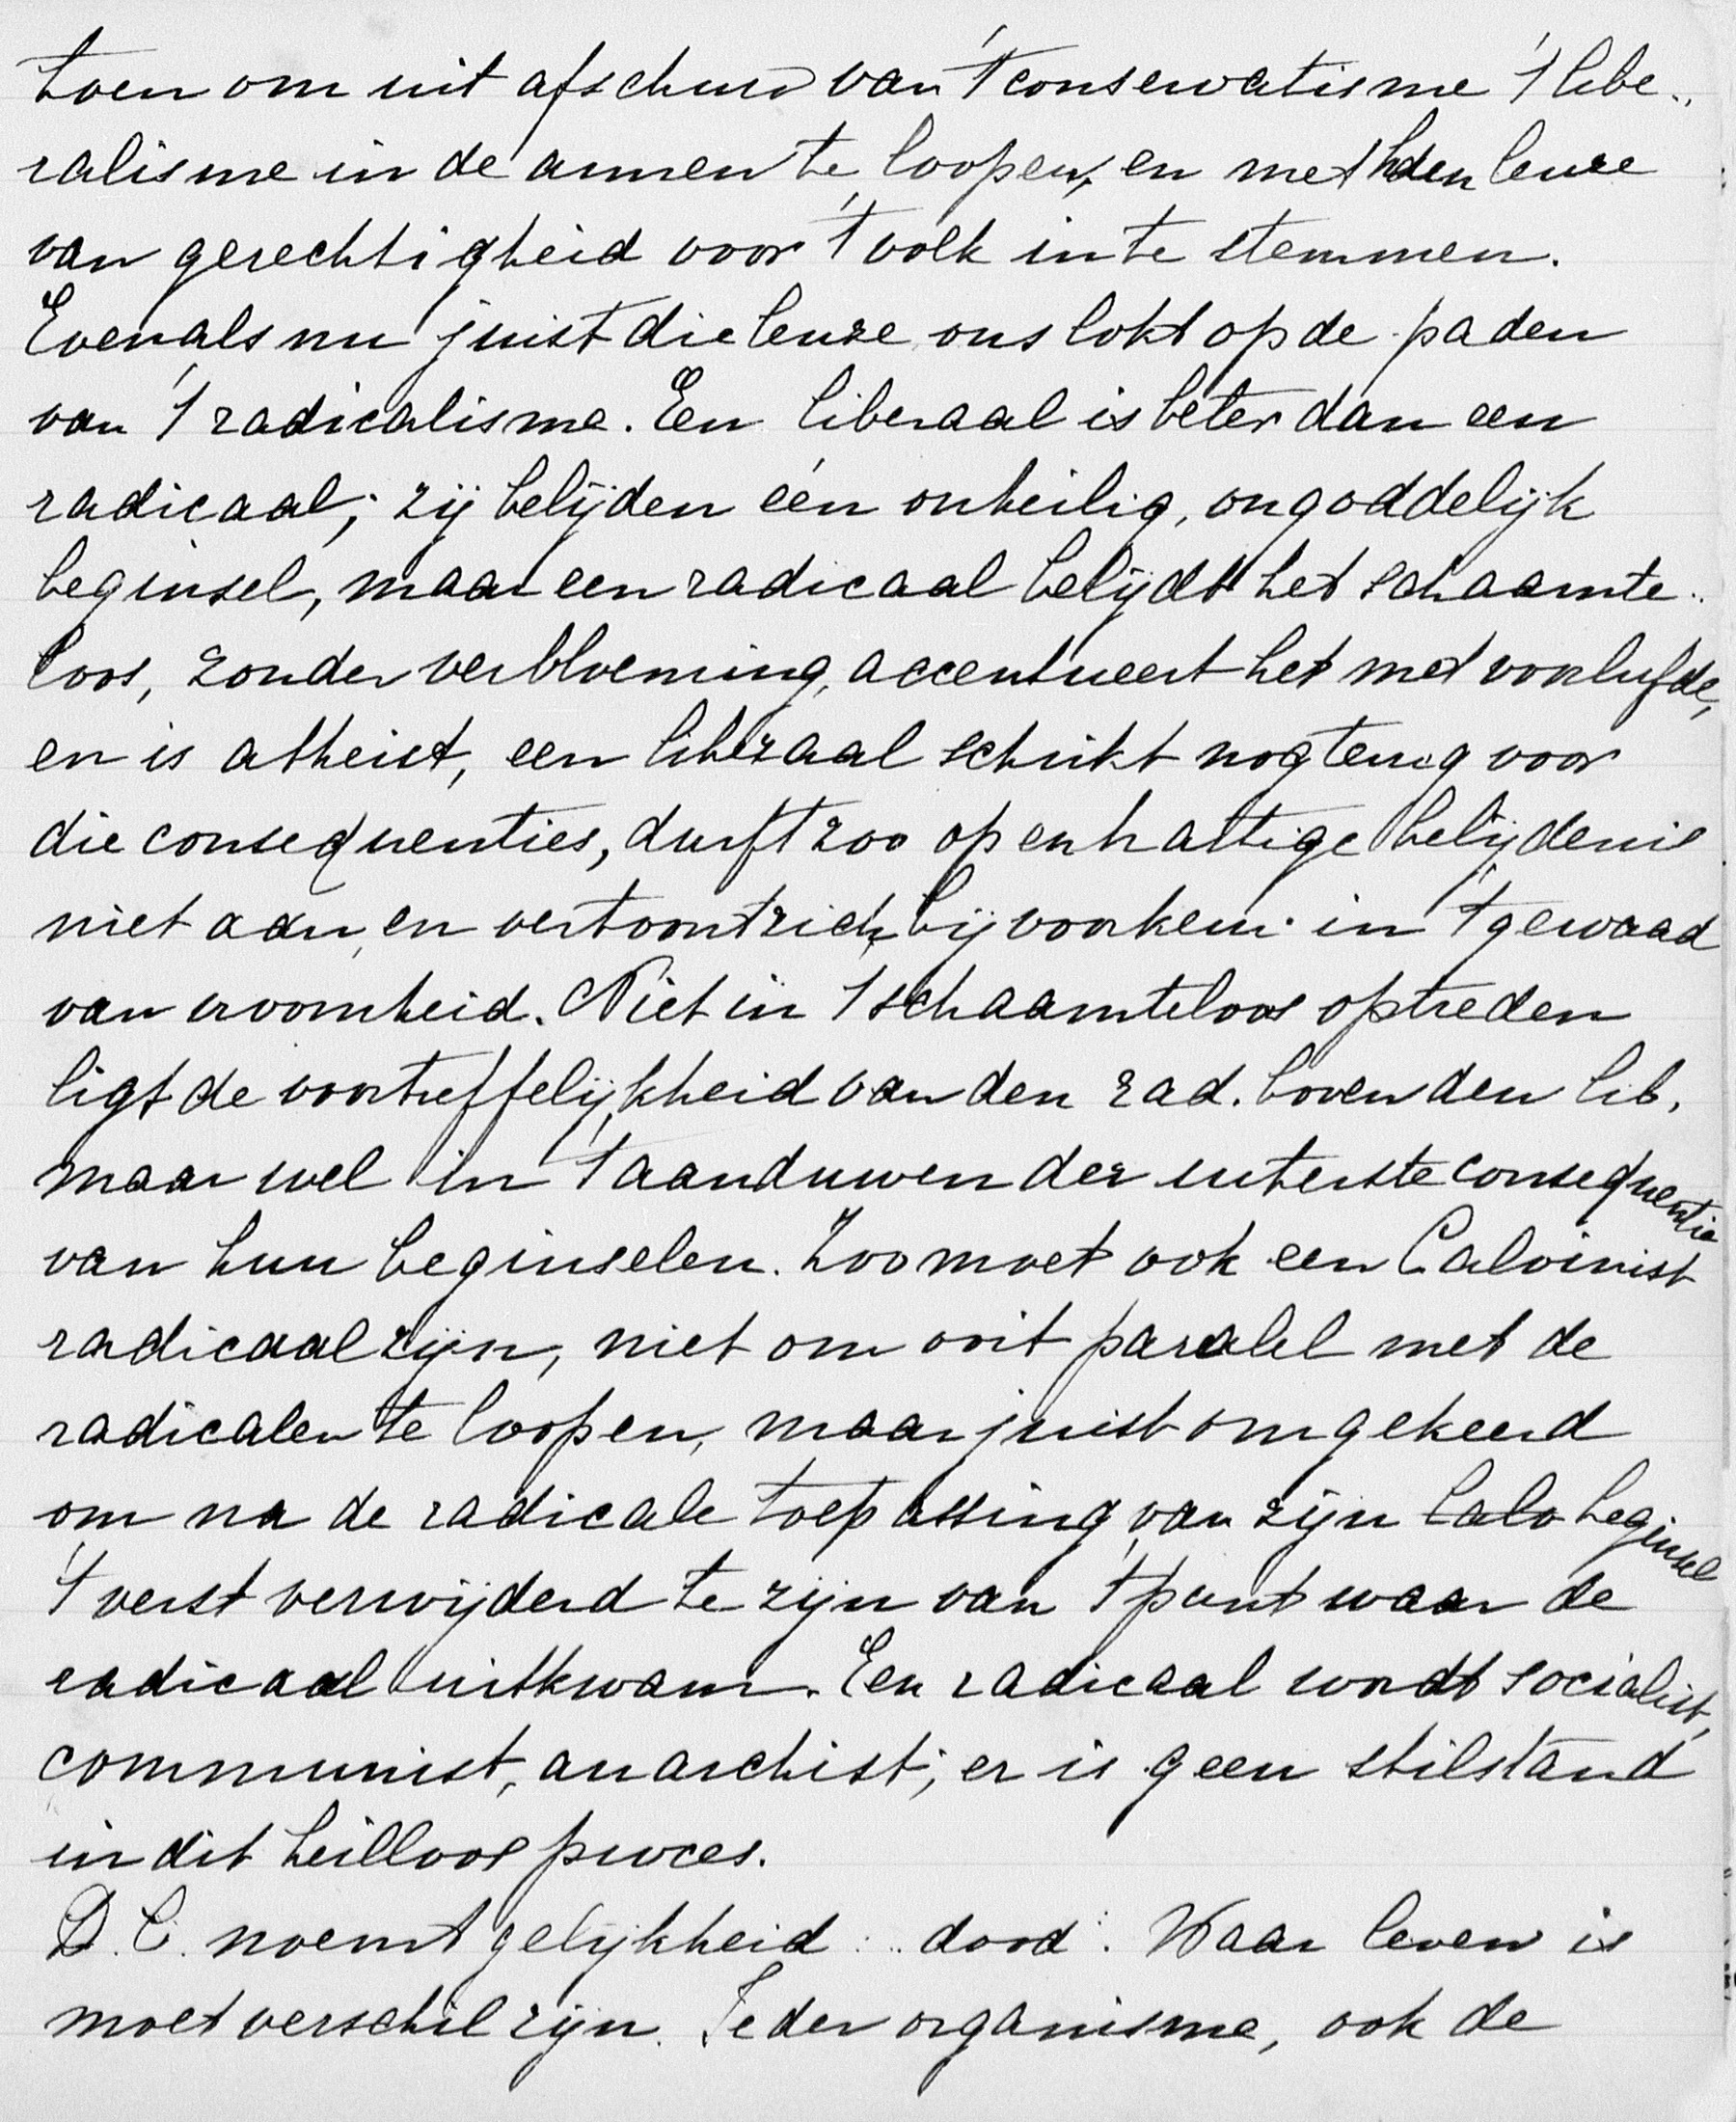 toen om uit afschuw van 't conservatisme 't libe-
ralisme in de armen te loopen, en met den leuze
van gerechtigheid voor 't volk in te stemmen.
Evenals nu juist die leuze ons lokt op de paden
van 't radicalisme. Een liberaal is beter dan een
radicaal; zij belijden één onheilig, ongoddelijk
beginsel, maar een radicaal belijdt het schaamte-
loos, zonder verbloeming, accentueert het met voorliefde,
en is atheist, een liberaal schrikt nog terug voor
die consequenties, durft zoo openhartige belijdenis
niet aan, en vertoont zich bij voorkeur in 't gewaad
van vroomheid. Niet in 't schaamteloos optreden
ligt de voortreffelijkheid van den rad. boven den lib,
maar wel in 't aanduwen der uiterste consequentie
van hun beginselen. Zoo moet ook een Calvinist
radicaal zijn, niet om ooit paralel met de
radicalen te loopen, maar juist omgekeerd
om na de radicale toepassing van zijn Calv beginsel
't verst verwijderd te zijn van 't punt waar de
radicaal uitkwam. Een radicaal wordt socialist,
communist, anarchist; er is geen stilstand
in dit heilloos proces.
D. C. noemt gelijkheid : "dood". Waar leven is
moet verschil zijn. Ieder organisme, ook de